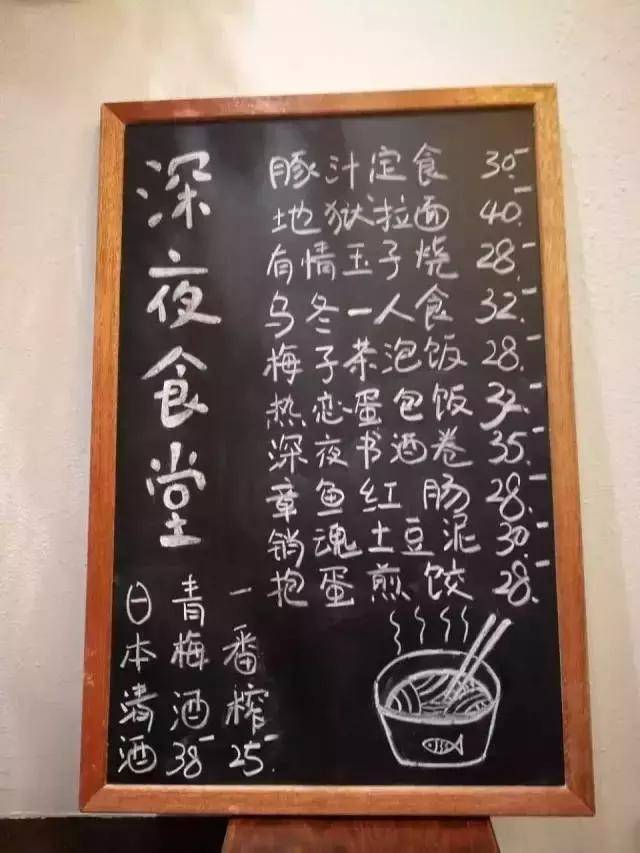 深夜食堂
豚汁定食 30-
地狱拉面 40-
有情玉子烧 28-
乌冬一人食 32-
梅子茶泡饭 28-
热恋蛋包饭 32-
深夜书酒卷 35-
章鱼红肠 28-
销魂土豆泥 30-
抱蛋煎饺 28-
一番榨 25-
青梅酒 38-
日本清酒